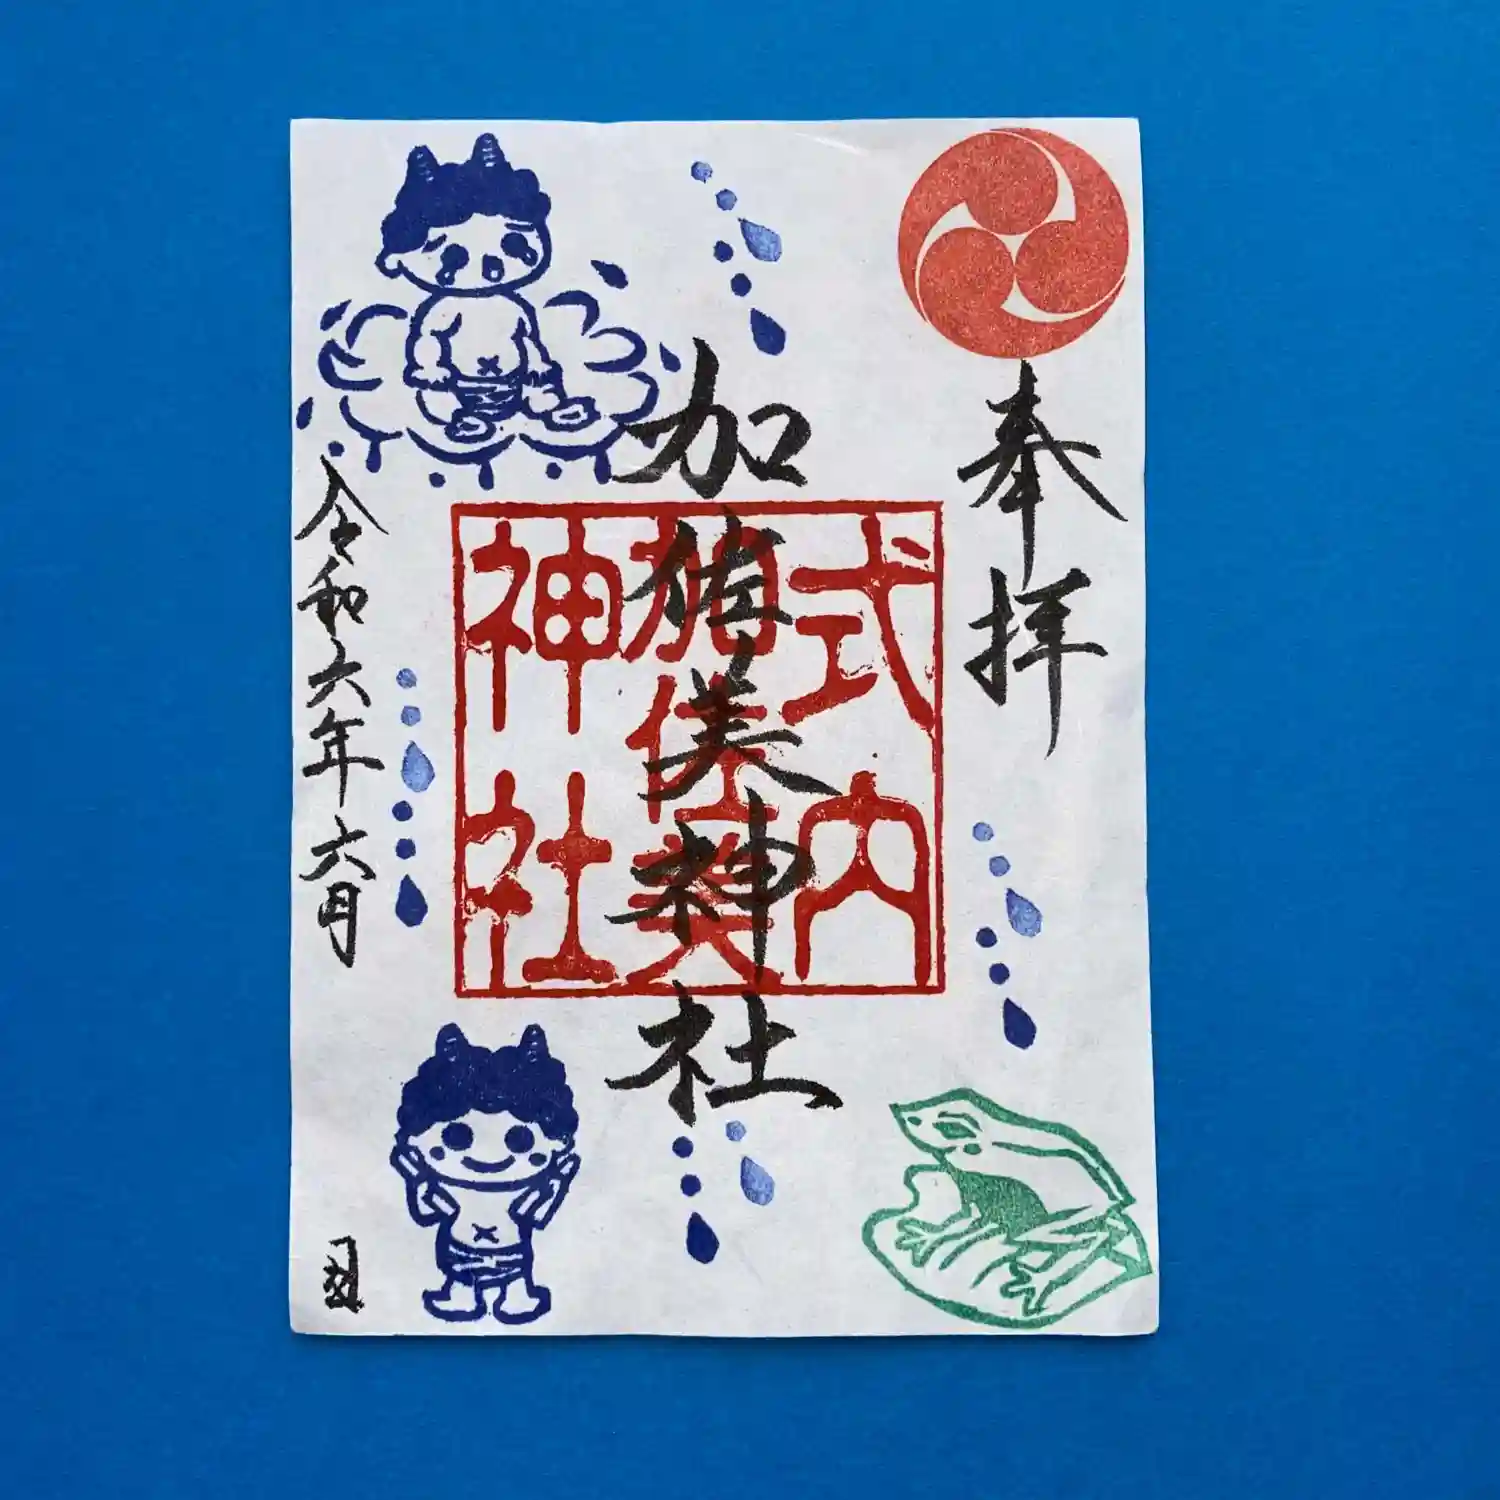 奉拝
加佐美神社
式内
加佐美
神社
令和六年六月
日